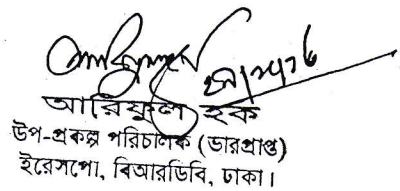 আরিফুল হক
উপ-প্রকল্প পরিচালক (ভারপ্রাপ্ত)
ইরেসপো, বিআরডিবি, ঢাকা।